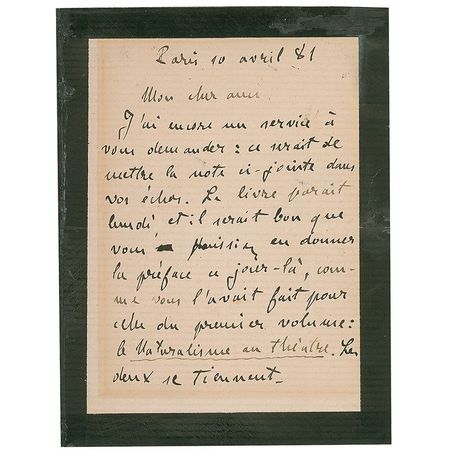 Paris 10 avril 81
Mon cher ami
J'ai encore un service à
vous demander : ce serait de
mettre la note ci-jointe dans
vos échos. Le livre parait
lundi, et il serait bon que
vous puissiez en donner
la préface ce jour-là, com-
me vous l'avait fait pour
celle du premier volume :
le Naturalisme au théâtre. Les
deux se tiennent.